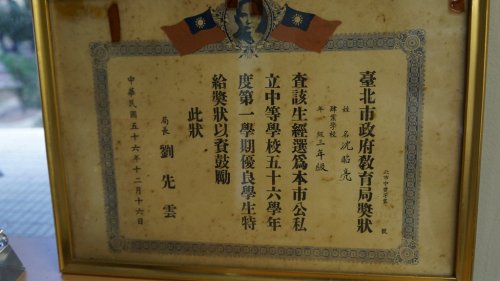 臺北市政府教育局獎狀
號
姓名 沈昭亮
肄業學校
年級 三年級
查該生經選爲本市公私
立中等學校五十六學年
度第一學期優良學生特
給獎狀以資鼓勵
此狀
局長 劉先雲
中華民國五十六年十二月十六日